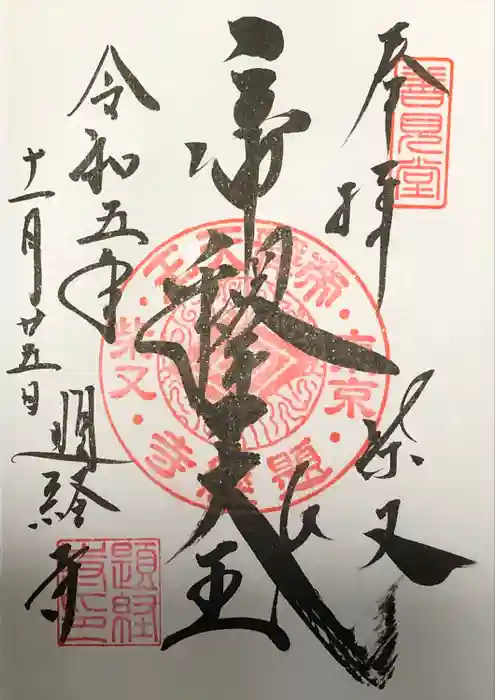 奉拝
柴又
帝釈天王
令和五年
十一月廿五日
題経寺
善見堂
帝釈天王
東京
柴又
題経寺
題経
寺印